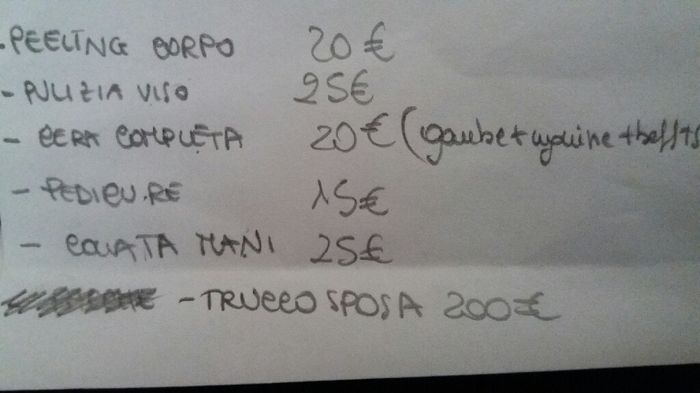 • PEELING CORPO 20€
- PULIZIA VISO 25€
- CERA COMPLETA 20€ (gambe + inguine + baff
- PEDICURE 15€
- COLATA MANI 25€
- TRUCCO SPOSA 200€